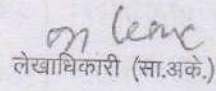 on leave
लेखाधिकारी (सा.अके.)